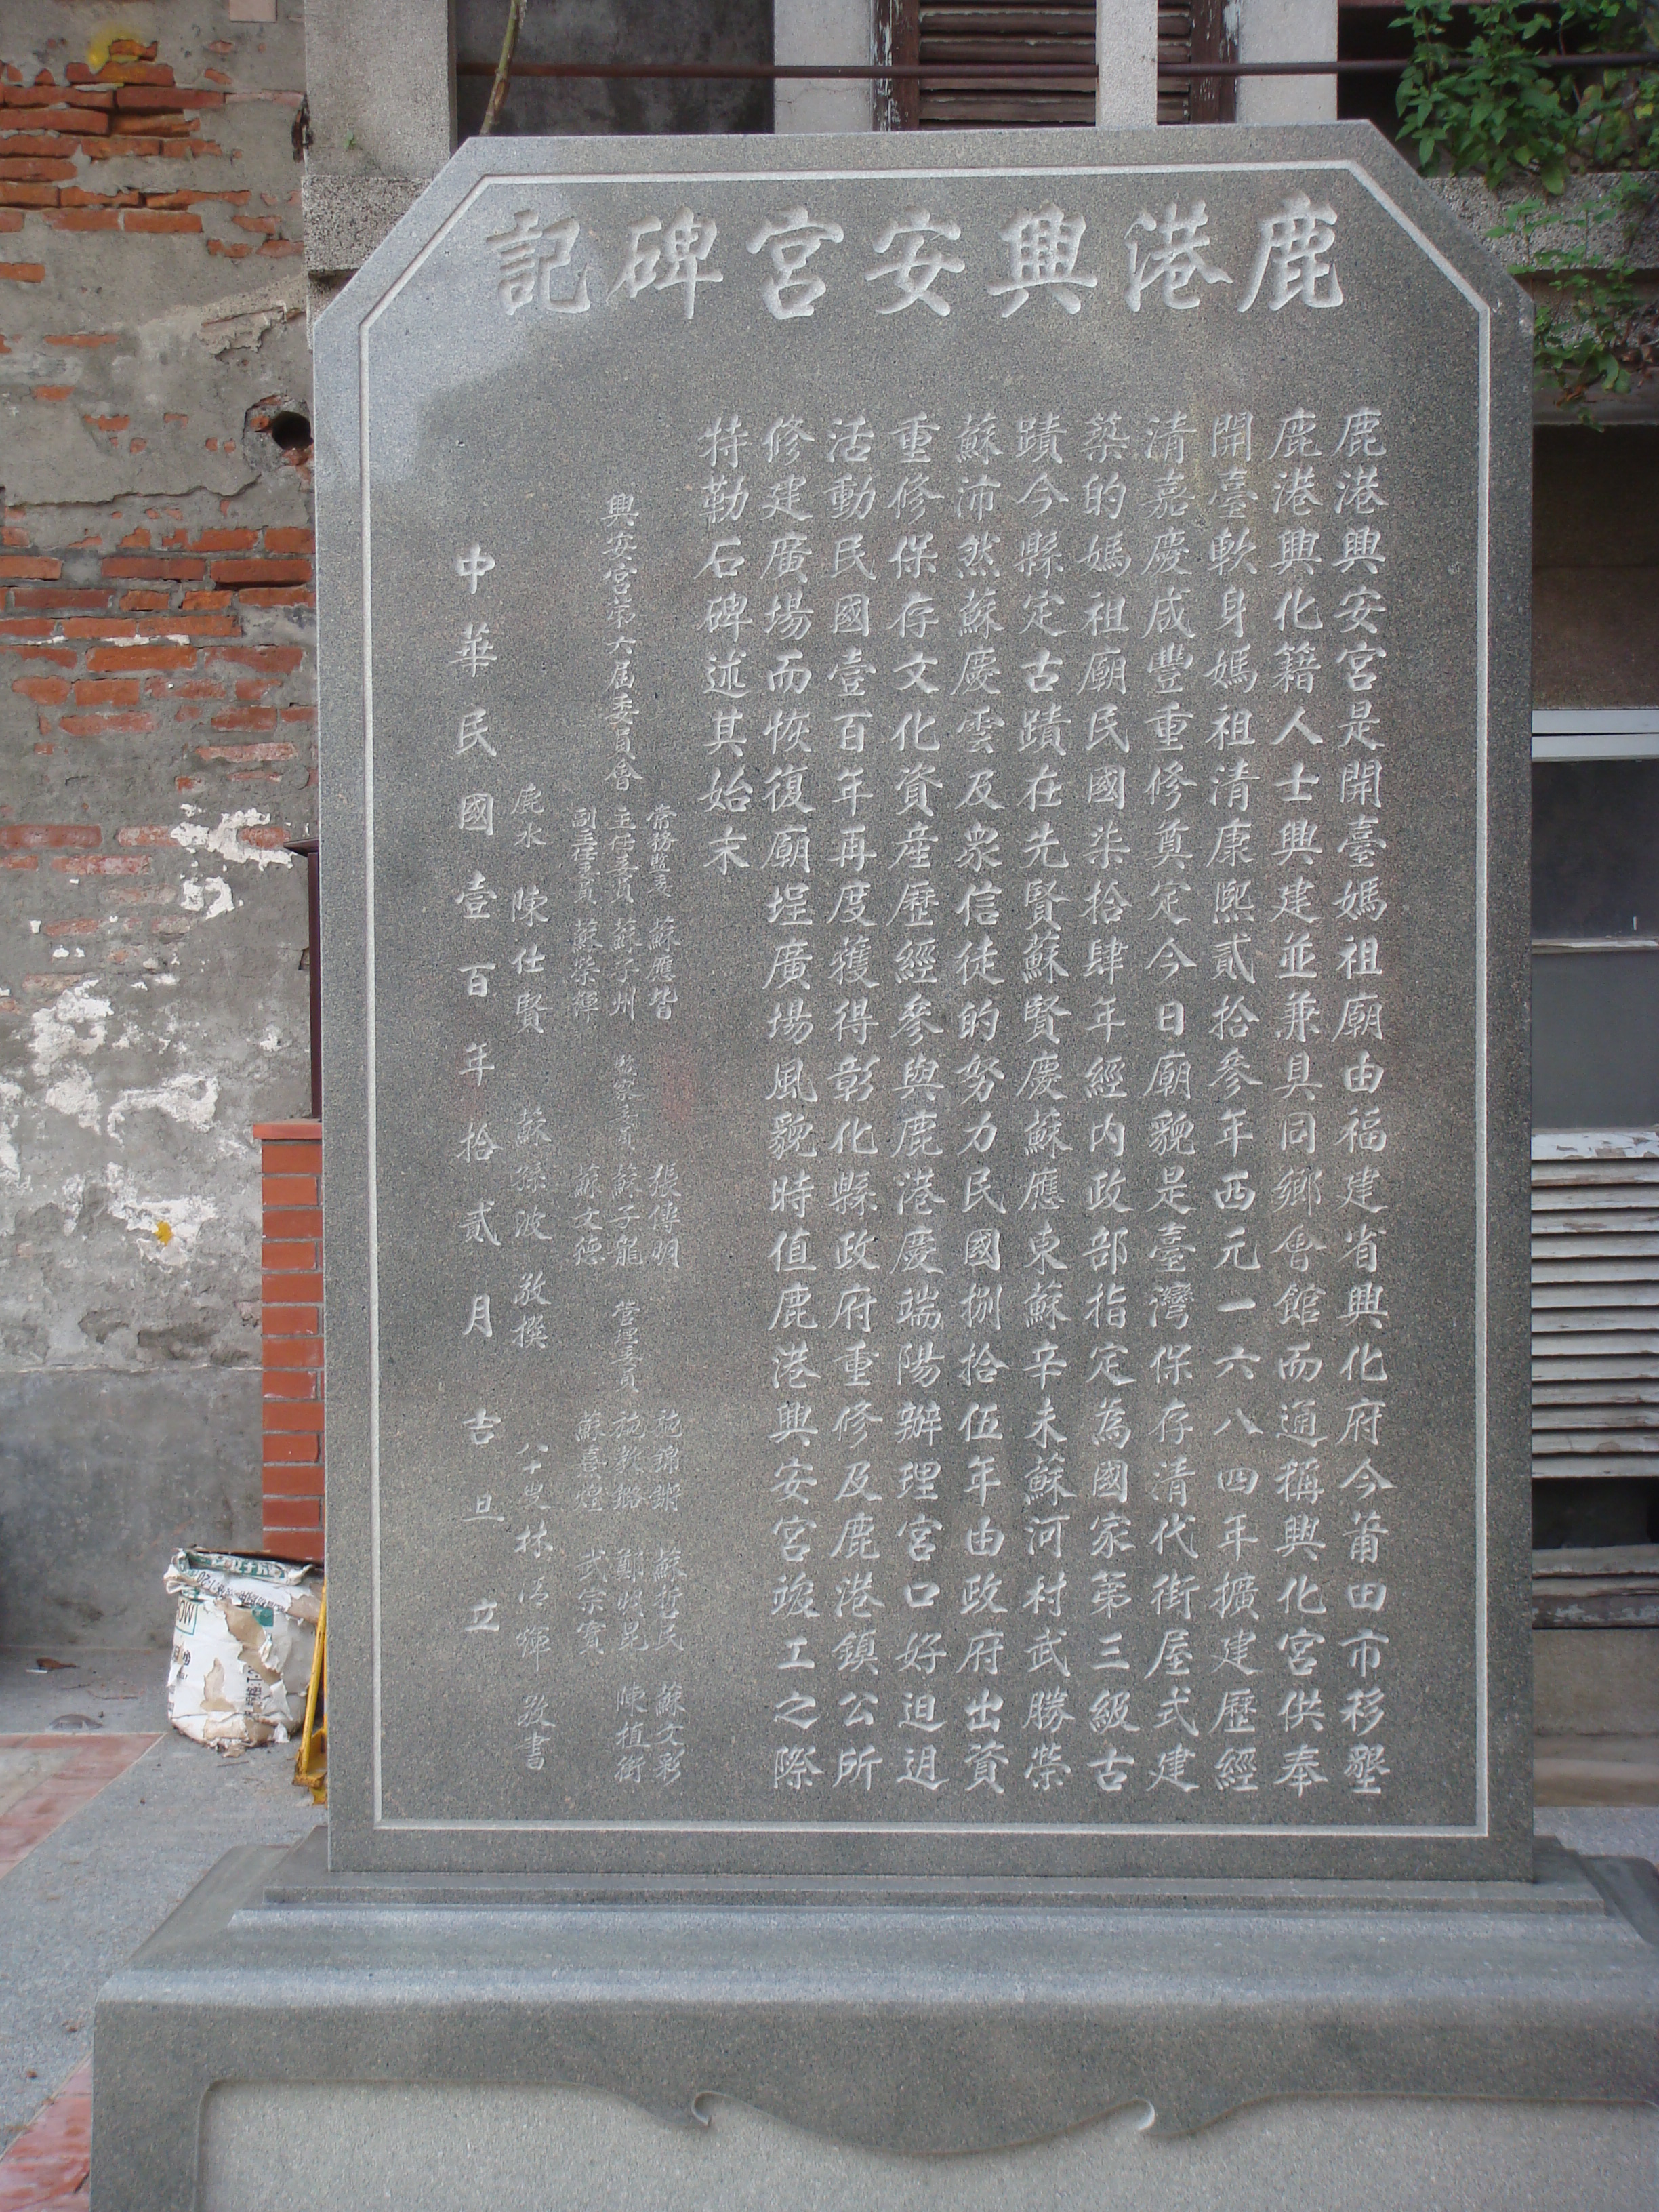 鹿港興安宮碑記
鹿港興安宮是開臺媽祖廟由福建省興化府今莆田市移墾
鹿港興化籍人士興建並兼具同鄉會館而通稱興化宮供奉
開臺軟身媽祖清康熙貳拾參年西元一六八四年擴建歷經
清嘉慶咸豐重修奠定今日廟貌是臺灣保存清代街屋式建
築的媽祖廟民國柒拾肆年經內政部指定為國家第三級古
蹟今縣定古蹟在先賢蘇賢慶蘇應東蘇辛未蘇河村武勝榮
蘇沛然蘇慶雲及眾信徒的努力民國捌拾伍年由政府出資
重修保存文化資產歷經參與鹿港慶端陽辦理宮口好迌迌
活動民國壹百年再度獲得彰化縣政府重修及鹿港鎮公所
修建廣場而恢復廟埕廣場風貌時值鹿港興安宮竣工之際
特勒石碑述其始末
常務監委 蘇應皆 張傳明 施錦鏘 蘇哲民 蘇文彩
興安宮第六屆委員會 主任委員 蘇子州 監察委員 蘇子龍 管理委員 施教鏴 鄭焜昆 陳植衡
副主任委員 蘇榮輝 蘇文德 蘇喜煌 武宗寶
鹿水 陳仕賢 蘇孫波 敬撰 八十叟 林清輝 敬書
中華民國壹百年拾貳月吉旦立